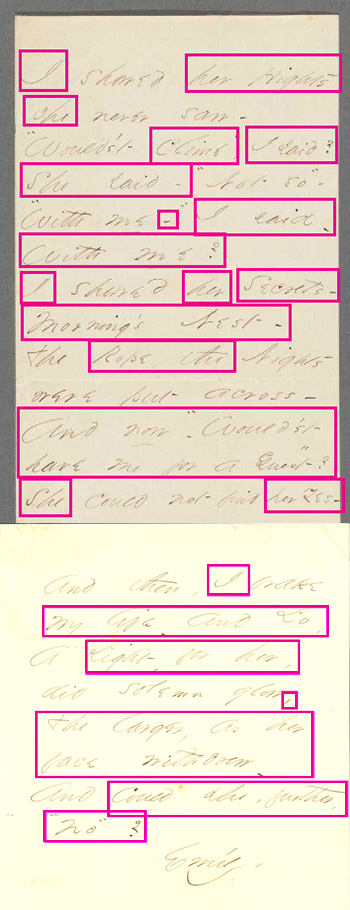 I showed her Hights
She never saw -
"Would'st Climb," I said?
She said - "Not so" -
"With me -" I said -
With me?
I showed her Secrets -
Morning's Nest -
The Rope the Nights
were put across -
And now - "Would'st
have me for a Guest"?
She could not find her Yes -
And then, I brake
my life - And Lo,
A Light, for her,
did solemn glow,
The larger, as her
face withdrew -
And could she, further,
"No"?
Emily.